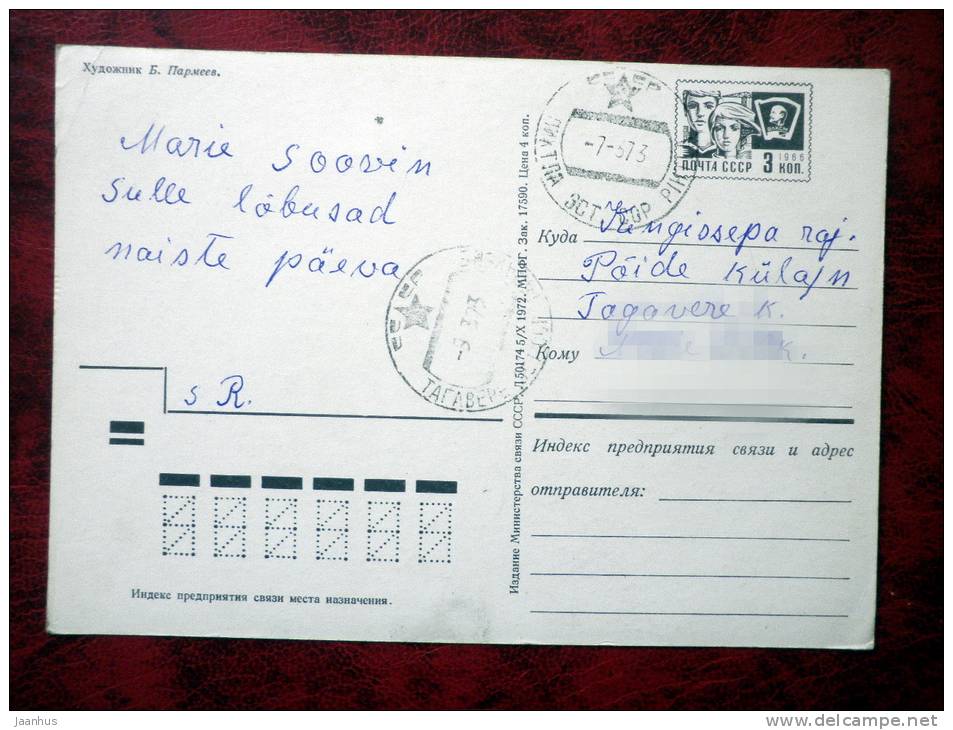 Художник Б. Пармеев.
Marie soovin
Sulle lõbusad
naiste päeva
s R.
Индекс предприятия связи места назначения.
Издание Министерства связи СССР. Д 50174 5/X 1972. МПФГ. Зак. 17590. Цена 4 коп.
-7-373
ЭСТ. ССР
ТАГАВЕРЕ
1966
ПОЧТА СССР 3 КОП.
Куда Kingissepa raj.
Pöide külajn
Tagavere k.
Кому
Индекс предприятия связи и адрес
отправителя:
jaanhus
http://www.delcampe.net